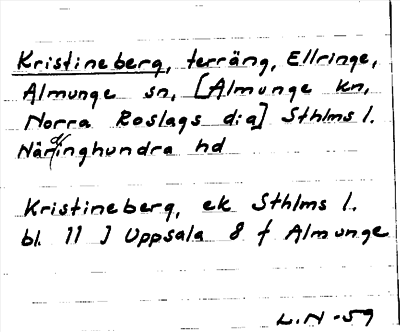 Kristineberg, terräng, Ellringe,
Almunge sn, [Almunge kn,
Norra Roslags d:a] Sthlms l.
Närdinghundra hd
Kristineberg, ek Sthlms l.
bl. 11 J Uppsala 8 f Almunge
L.N -59